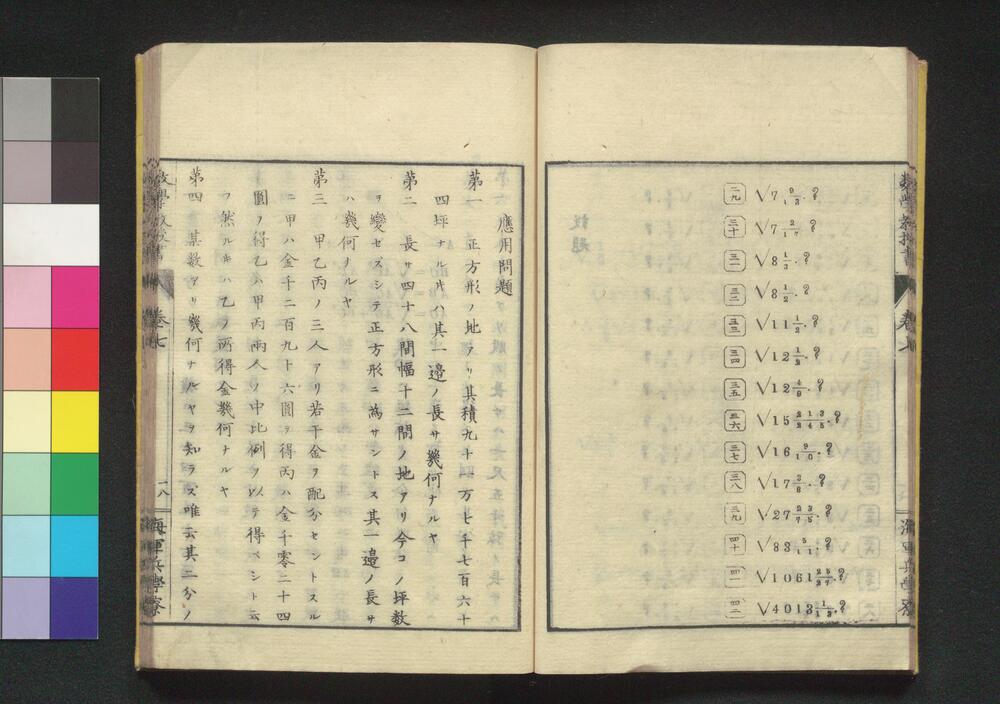 二九 √7 9/13.?
三十 √7 2/17.?
三一 √8 1/3.?
三二 √8 1/2.?
三三 √11 1/2.?
三四 √12 1/2.?
三五 √12 4/9.?
三六 √15 213/245.?
三七 √16 9/10.?
三八 √17 3/8.?
三九 √27 23/75.?
四十 √83 5/11.?
四一 √1061 25/37.?
四二 √4013 1/13.?
卷七
海軍兵學寮
應用問題
第一 正方形ノ地アリ其積九十四万七千七百六十
四坪ナル片ハ其一邉ノ長サ幾何ナルヤ
第二 長サ四十八間幅十二間ノ地アリ今コノ坪数
ヲ變セスシテ正方形ニ為サントス其一邉ノ長サ
ハ幾何ナルヤ
第三 甲乙丙ノ三人アリ若干金ヲ配分セントスル
ニ甲ハ金千二百九十六圓ヲ得丙ハ金千零二十四
圓ヲ得乙ハ甲丙兩人ノ中比例ヲ以テ得ベシト云
フ然ルキハ乙ノ所得金幾何ナルヤ
第四 某数アリ幾何ナルヤヲ知ラズ唯云其二分ノ
數學教授書
卷七
十八
海軍兵學寮